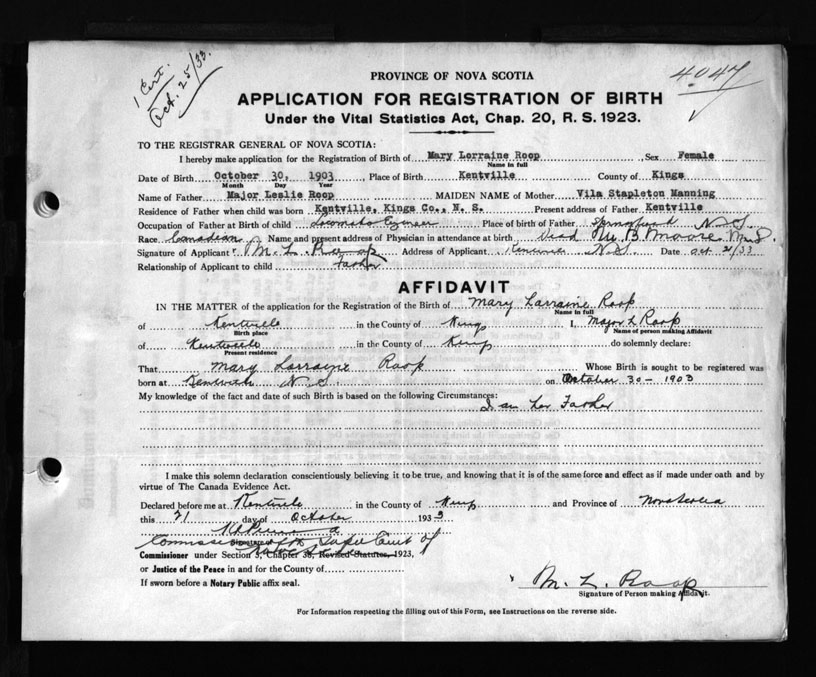 1 Cert.
Oct. 25/33.
4047
PROVINCE OF NOVA SCOTIA
APPLICATION FOR REGISTRATION OF BIRTH
Under the Vital Statistics Act, Chap. 20, R. S. 1923.
TO THE REGISTRAR GENERAL OF NOVA SCOTIA:
I hereby make application for the Registration of Birth of Mary Lorraine Roop, Sex Female
Name in full
Date of Birth October 30, 1903, Place of Birth Kentville County of Kings
Month Day Year
Name of Father Major Leslie Roop MAIDEN NAME of Mother Vila Stapleton Manning
Residence of Father when child was born Kentville, Kings Co., N. S. Present address of Father Kentville
Occupation of Father at Birth of child Place of birth of Father Springfield N.S.
Race Canadian Name and present address of Physician in attendance at birth Dead W B Moore M.D.
Signature of Applicant M. L. Roop Address of Applicant Kentville N.S. Date Oct 21/33
Relationship of Applicant to child Father
AFFIDAVIT
IN THE MATTER of the application for the Registration of the Birth of Mary Lorraine Roop
Name in full
of Kentville in the County of Kings I, Major L Roop
Birth place Name of person making Affidavit
of Kentville in the County of Kings do solemnly declare:
Present residence
That Mary Lorraine Roop Whose Birth is sought to be registered was
born at Kentville N.S. on October 30 - 1903
My knowledge of the fact and date of such Birth is based on the following Circumstances:
I am her Father
I make this solemn declaration conscientiously believing it to be true, and knowing that it is of the same force and effect as if made under oath and by
virtue of The Canada Evidence Act.
Declared before me at Kentville in the County of Kings and Province of Nova Scotia
this 21 day of October 1933
Commissioner Supr Court of
Commissioner under Section 3, Chapter 38, Revised Statutes, 1923,
or Justice of the Peace in and for County of
If sworn before a Notary Public affix seal.
M. L. Roop
Signature of Person making Affidavit.
For Information respecting the filling out of this Form, see Instructions on the reverse side.